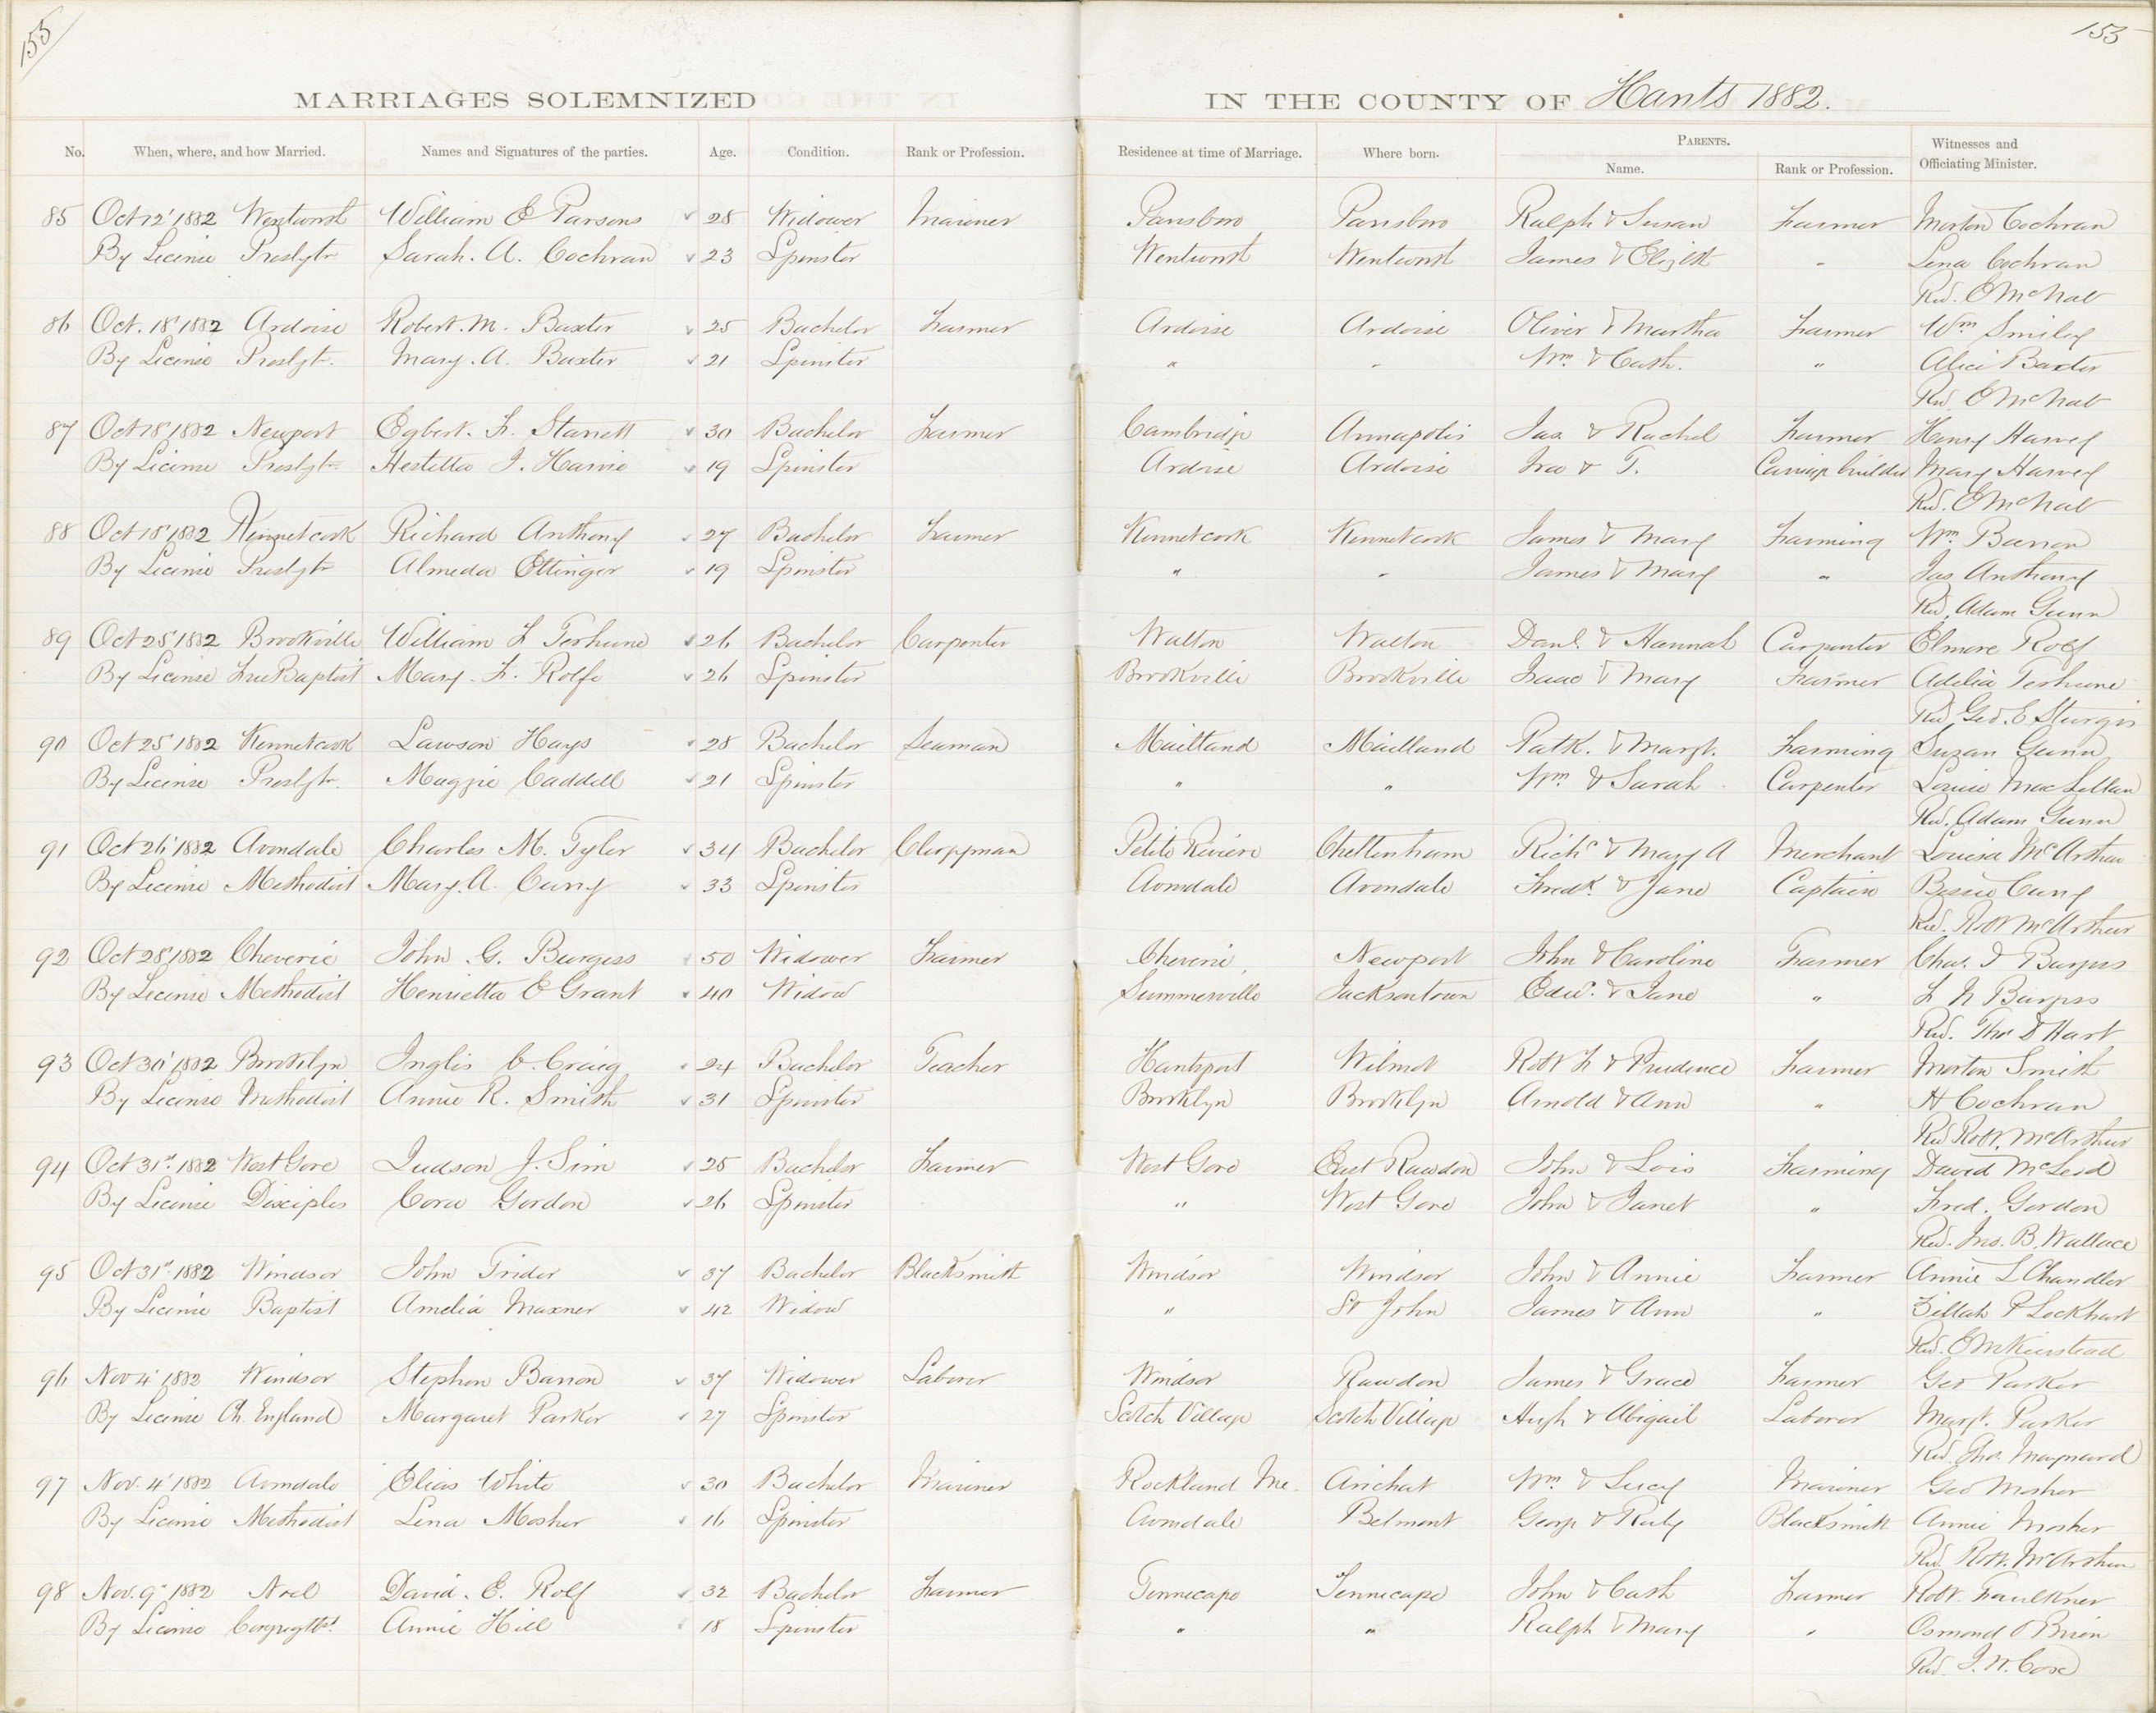 155
155
MARRIAGES SOLEMNIZED IN THE COUNTY OF Hants 1882.
No. When, where, and how Married. Names and Signatures of the parties. Age. Condition. Rank or Profession. Residence at time of Marriage. Where born. PARENTS. Witnesses and
Name. Rank or Profession. Officiating Minister.
85 Oct 12' 1882 Wentworth William E Parsons 28 Widower Mariner Parrsboro Parrsboro Ralph & Susan Farmer Morton Cochran
By License Presbytr Sarah. A. Cochran 23 Spinster Wentworth Wentworth James & Elizbth " Lena Cochran
Rev. E McNab
86 Oct. 18' 1882 Ardoise Robert. M. Baxter 25 Bachelor Farmer Ardoise Ardoise Oliver & Martha Farmer Wm Smiley
By License Presbytr. Mary. A. Baxter 21 Spinster " " Wm. & Cath. " Alice Baxter
Rev. E McNab
87 Oct 18' 1882 Newport Egbert. F. Starrett 30 Bachelor Farmer Cambridge Annapolis Jas. & Rachel Farmer Henry Harvey
By License Presbytr. Hestella J. Harvie 19 Spinster Ardoise Ardoise Ira & T. Carriage builder Mary Harvey
Rev. E McNab
88 Oct 18' 1882 Kennetcook Richard Anthony 27 Bachelor Farmer Kennetcook Kennetcook James & Mary Farming Wm Barron
By License Presbytr Almeda Ettinger 19 Spinster " " James & Mary " Jas Anthony
Rev. Adam Gunn
89 Oct 25' 1882 Brookville William L Terhune 26 Bachelor Carpenter Walton Walton Danl. & Hannah Carpenter Elmore Rolf
By License Free Baptist Mary. F. Rolfe 26 Spinster Brookville Brookville Isaac & Mary Farmer Adelia Terhune
Rev. Geo. E Sturgis
90 Oct 25' 1882 Kennetcook Lawson Hays 28 Bachelor Seaman Maitland Maitland Patk. & Margt. Farming Suzan Gunn
By License Presbytr. Maggie Caddell 21 Spinster " " Wm. & Sarah Carpenter Louise MacLellan
Rev. Adam Gunn
91 Oct 26' 1882 Avondale Charles M. Tyler 34 Bachelor Clergyman Petite Riviere Cheltenham Richd & Mary A Merchant Louisa McArthur
By License Methodist Mary. A. Curry 33 Spinster Avondale Avondale Fredk. & Jane Captain Bessie Curry
Rev. Robt McArthur
92 Oct 28' 1882 Cheverie John. G. Burgess 50 Widower Farmer Cheverie Newport John & Caroline Farmer Chas. I Burgess
By License Methodist Henrietta E Grant 40 Widow Summerville Jacksontown Edw. & Jane " L N Burgess
Rev. Thos D Hart
93 Oct 30' 1882 Brooklyn Inglis C. Craig 24 Bachelor Teacher Hantsport Wilmot Robt F & Prudence Farmer Morton Smith
By License Methodist Annie R. Smith 31 Spinster Brooklyn Brooklyn Arnold & Ann " H Cochran
Rev Robt. McArthur
94 Oct 31st. 1882 West Gore Judson J. Sim 25 Bachelor Farmer West Gore East Rawdon John & Lois Farming David McLeod
By License Disciples Cora Gordon 26 Spinster " West Gore John & Janet " Fred. Gordon
Rev. Jno. B. Wallace
95 Oct 31st. 1882 Windsor John Trider 37 Bachelor Blacksmith Windsor Windsor John & Annie Farmer Annie L Chandler
By License Baptist Amelia Maxner 42 Widow " St John James & Ann " Zillah P Lockhart
Rev. E M Kierstead
96 Nov 4' 1882 Windsor Stephen Barron 37 Widower Laborer Windsor Rawdon James & Grace Farmer Geo Parker
By License Ch. England Margaret Parker 27 Spinster Scotch Village Scotch Village Hugh & Abigail Laborer Margt. Parker
Rev. Thos. Maynard
97 Nov. 4' 1882 Avondale Elias White 30 Bachelor Mariner Rockland Me. Arichat Wm. & Lucy Mariner Geo Mosher
By License Methodist Lena Mosher 16 Spinster Avondale Belmont George & Ruby Blacksmith Annie Mosher
Rev. Robt. McArthur
98 Nov. 9" 1882 Noel David. E. Rolf 32 Bachelor Farmer Tennecape Tennecape John & Cath Farmer Robt. Faulkner
By License Congregtl. Annie Hill 18 Spinster " " Ralph & Mary " Osmond O Brien
Rev. J. W. Cox